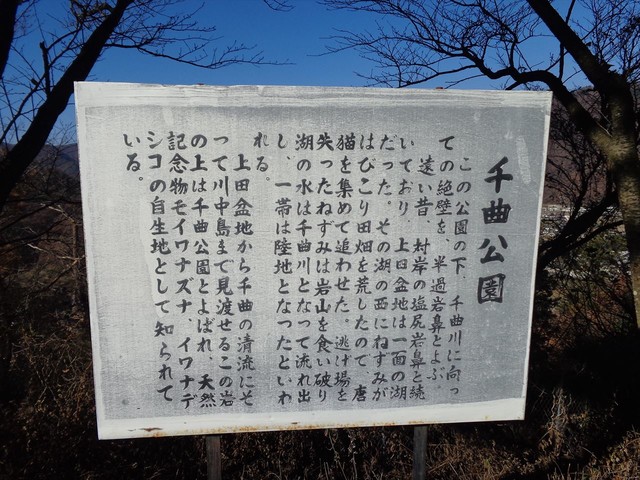 千曲公園
この公園の下、千曲川に向っ
ての絶壁を、半過岩鼻とよぶ
遠い昔、対岸の塩尻岩鼻と続
いており、上田盆地は一面の湖
だった。その湖の西にねずみが
はびこり田畑を荒したので、唐
猫を集めて追わせた。逃げ場を
失ったねずみは岩山を食い破り
湖の水は千曲川となって流れ出
し、一帯は陸地となったといわ
れる。
上田盆地から千曲の清流にそ
って川中島まで見渡せるこの岩
の上は千曲公園とよばれ、天然
記念物モイワナズナ、イワナデ
シコの自生地として知られて
いる。